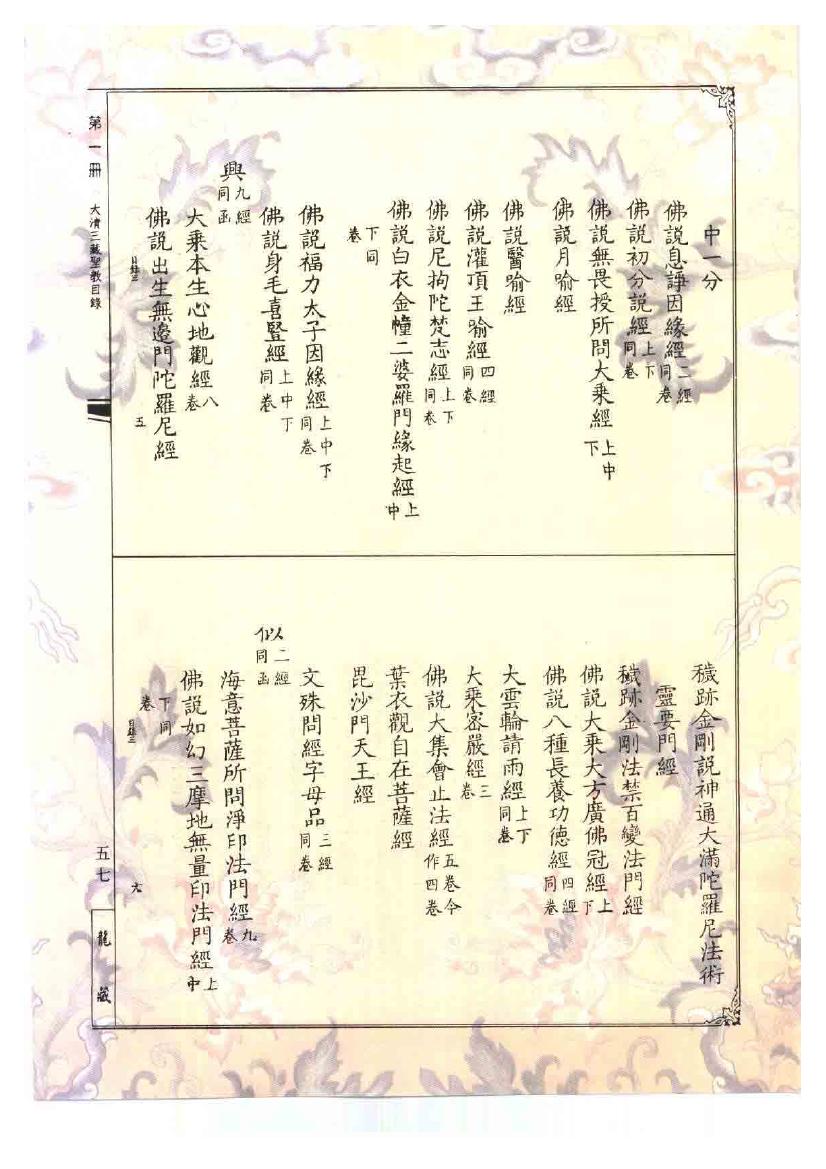 中一分
佛説息諍因緣經二經同卷
佛説初分説經上下同卷
佛説無畏授所問大乘經上中下
佛説月喻經
佛説醫喻經
佛説灌頂王喻經四經同卷
佛説尼拘陀梵志經上下同卷
佛説白衣金幢二婆羅門緣起經上中
下同卷
佛説福力太子因緣經上中下同卷
佛説身毛喜豎經上中下同卷
興九經同函
大乘本生心地觀經八卷
佛説出生無邊門陀羅尼經
目錄三
五
穢跡金剛説神通大滿陀羅尼法術
靈要門經
穢跡金剛法禁百變法門經
佛説大乘大方廣佛冠經上下
佛説八種長養功德經四經同卷
大雲輪請雨經上下同卷
大乘密嚴經三卷
佛説大集會正法經五卷今作四卷
葉衣觀自在菩薩經
毘沙門天王經
文殊問經字母品三經同卷
似二經同函
海意菩薩所問淨印法門經九卷
佛説如幻三摩地無量印法門經上中
下同卷
目錄三
六
第一冊
大清三藏聖教目錄
五七
龍藏